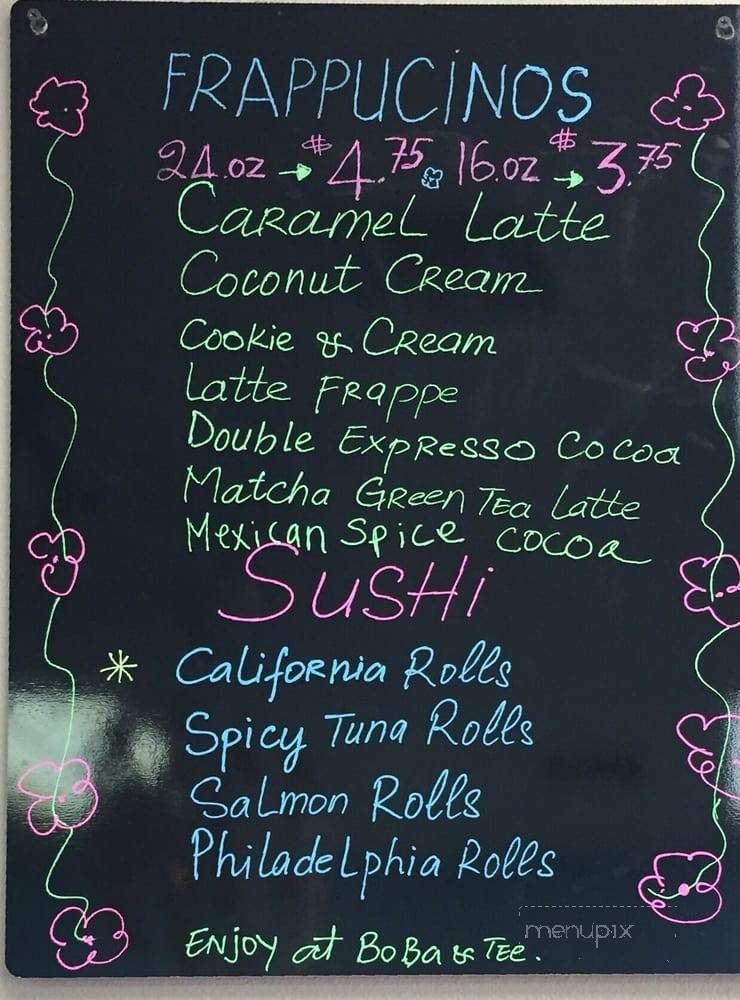 FRAPPUCINOS
24.oz → $4.75 16.oz → $3.75
Caramel Latte
Coconut Cream
Cookie & Cream
Latte Frappe
Double Expresso Cocoa
Matcha Green Tea Latte
Mexican Spice Cocoa
SUSHi
* California Rolls
Spicy Tuna Rolls
Salmon Rolls
Philadelphia Rolls
Enjoy at BoBa & Tee.
menupix